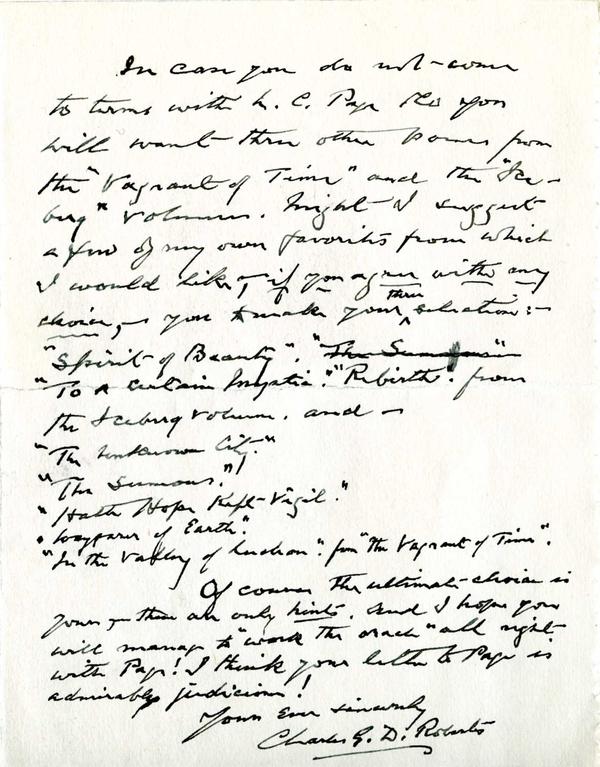 In case you do not come
to terms with L. C. Page & Co you
will want three other poems from
the "Vagrant of Time" and the "Ice-
berg" volumes. Might I suggest
a few of my own favorites from which
I would like, – if you agree with my
choice, – you to make your three selections: –
"Spirit of Beauty". "The Summons"
"To a Certain Mystic". "Rebirth". from
the Iceberg volume. and –
"The Unknown City."
"The Summons."!
"Hath Hope Kept Vigil."
"Wayfarer of Earth".
"In the Valley of Luchon". from "The Vagrant of Time".
Of course the ultimate choice is
yours, – these are only hints. And I hope you
will manage to "work the oracle" all right
with Page! I think your letter to Page is
admirably judicious!
Yours Ever sincerely
Charles G. D. Roberts